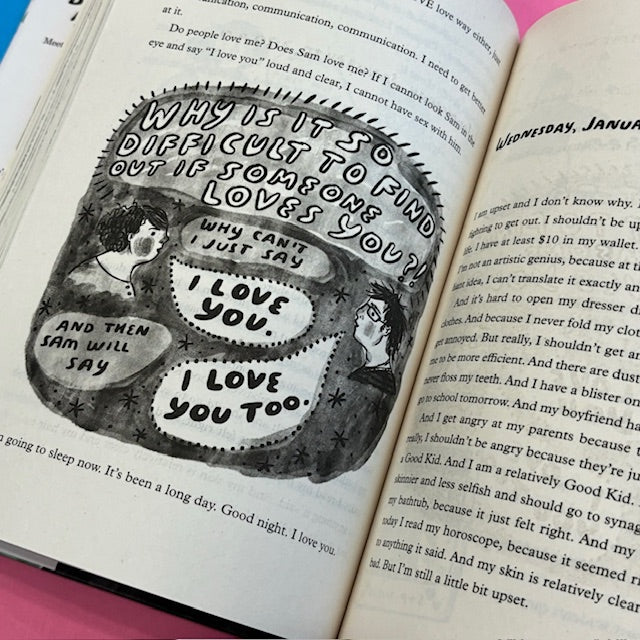 Meet
LOVE love way either, just
communication, communication, communication. I need to get better
at it.
Do people love me? Does Sam love me? If I cannot look Sam in the
eye and say “I love you” loud and clear, I cannot have sex with him.
WHY IS IT SO
DIFFICULT TO FIND
OUT IF SOMEONE
LOVES YOU?!
WHY CAN'T
I JUST SAY
I LOVE
YOU.
AND THEN
SAM WILL
SAY
I LOVE
YOU TOO.
going to sleep now. It’s been a long day. Good night. I love you.
WEDNESDAY, JANUA
I am upset and I don’t know why.
fighting to get out. I shouldn’t be up
life. I have at least $10 in my wallet.
I’m not an artistic genius, because at th
idea, I can’t translate it exactly an
And it’s hard to open my dresser d
clothes. And because I never fold my clot
get annoyed. But really, I shouldn’t get an
me to be more efficient. And there are dust
never floss my teeth. And I have a blister on
go to school tomorrow. And my boyfriend ha
And I get angry at my parents because t
really, I shouldn’t be angry because they’re ju
a Good Kid. And I am a relatively Good Kid.
skinnier and less selfish and should go to synag
my bathtub, because it just felt right. And my
today I read my horoscope, because it seemed ri
to anything it said. And my skin is relatively clear
bad. But I’m still a little bit upset.